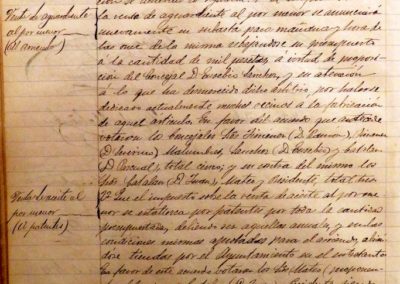 Venta de aguardiente
al por menor
(Al arriendo)
la venta de aguardiente al por menor se anunciará
nuevamente en subasta para mañana y hora de
las once de la misma rebajando su presupuesto
á la cantidad de mil pesetas á virtud de proposi-
ción del Concejal D. Eusebio Sanchez, y en atención
á lo que ha desmerecido dicho arbitrio, por haberse
dedicado actualmente muchos vecinos á la fabricación
de aquel artículo. En favor del acuerdo que antecede
votaron los Concejales Sres Jimenez (D. Ramon), Jimenez
(D. ) Maldonado, Sanchez (D. Eusebio), y Catalan
(D. Pascual), total cinco; y en contra del mismo los
Sres Catalan (D. Juan), Mateo y Presidente, total tres.
Venta de aceite al
por menor
(A patentes)
Que el impuesto sobre la venta de aceite al por me-
nor se establezca por patentes por toda la cantidad
presupuestada, debiendo ser aquellas anuales, y en las
condiciones mismas apuntadas para el arriendo,
tiendas por el Ayuntamiento en el entretanto
En favor de este acuerdo votaron los Sres Mateo